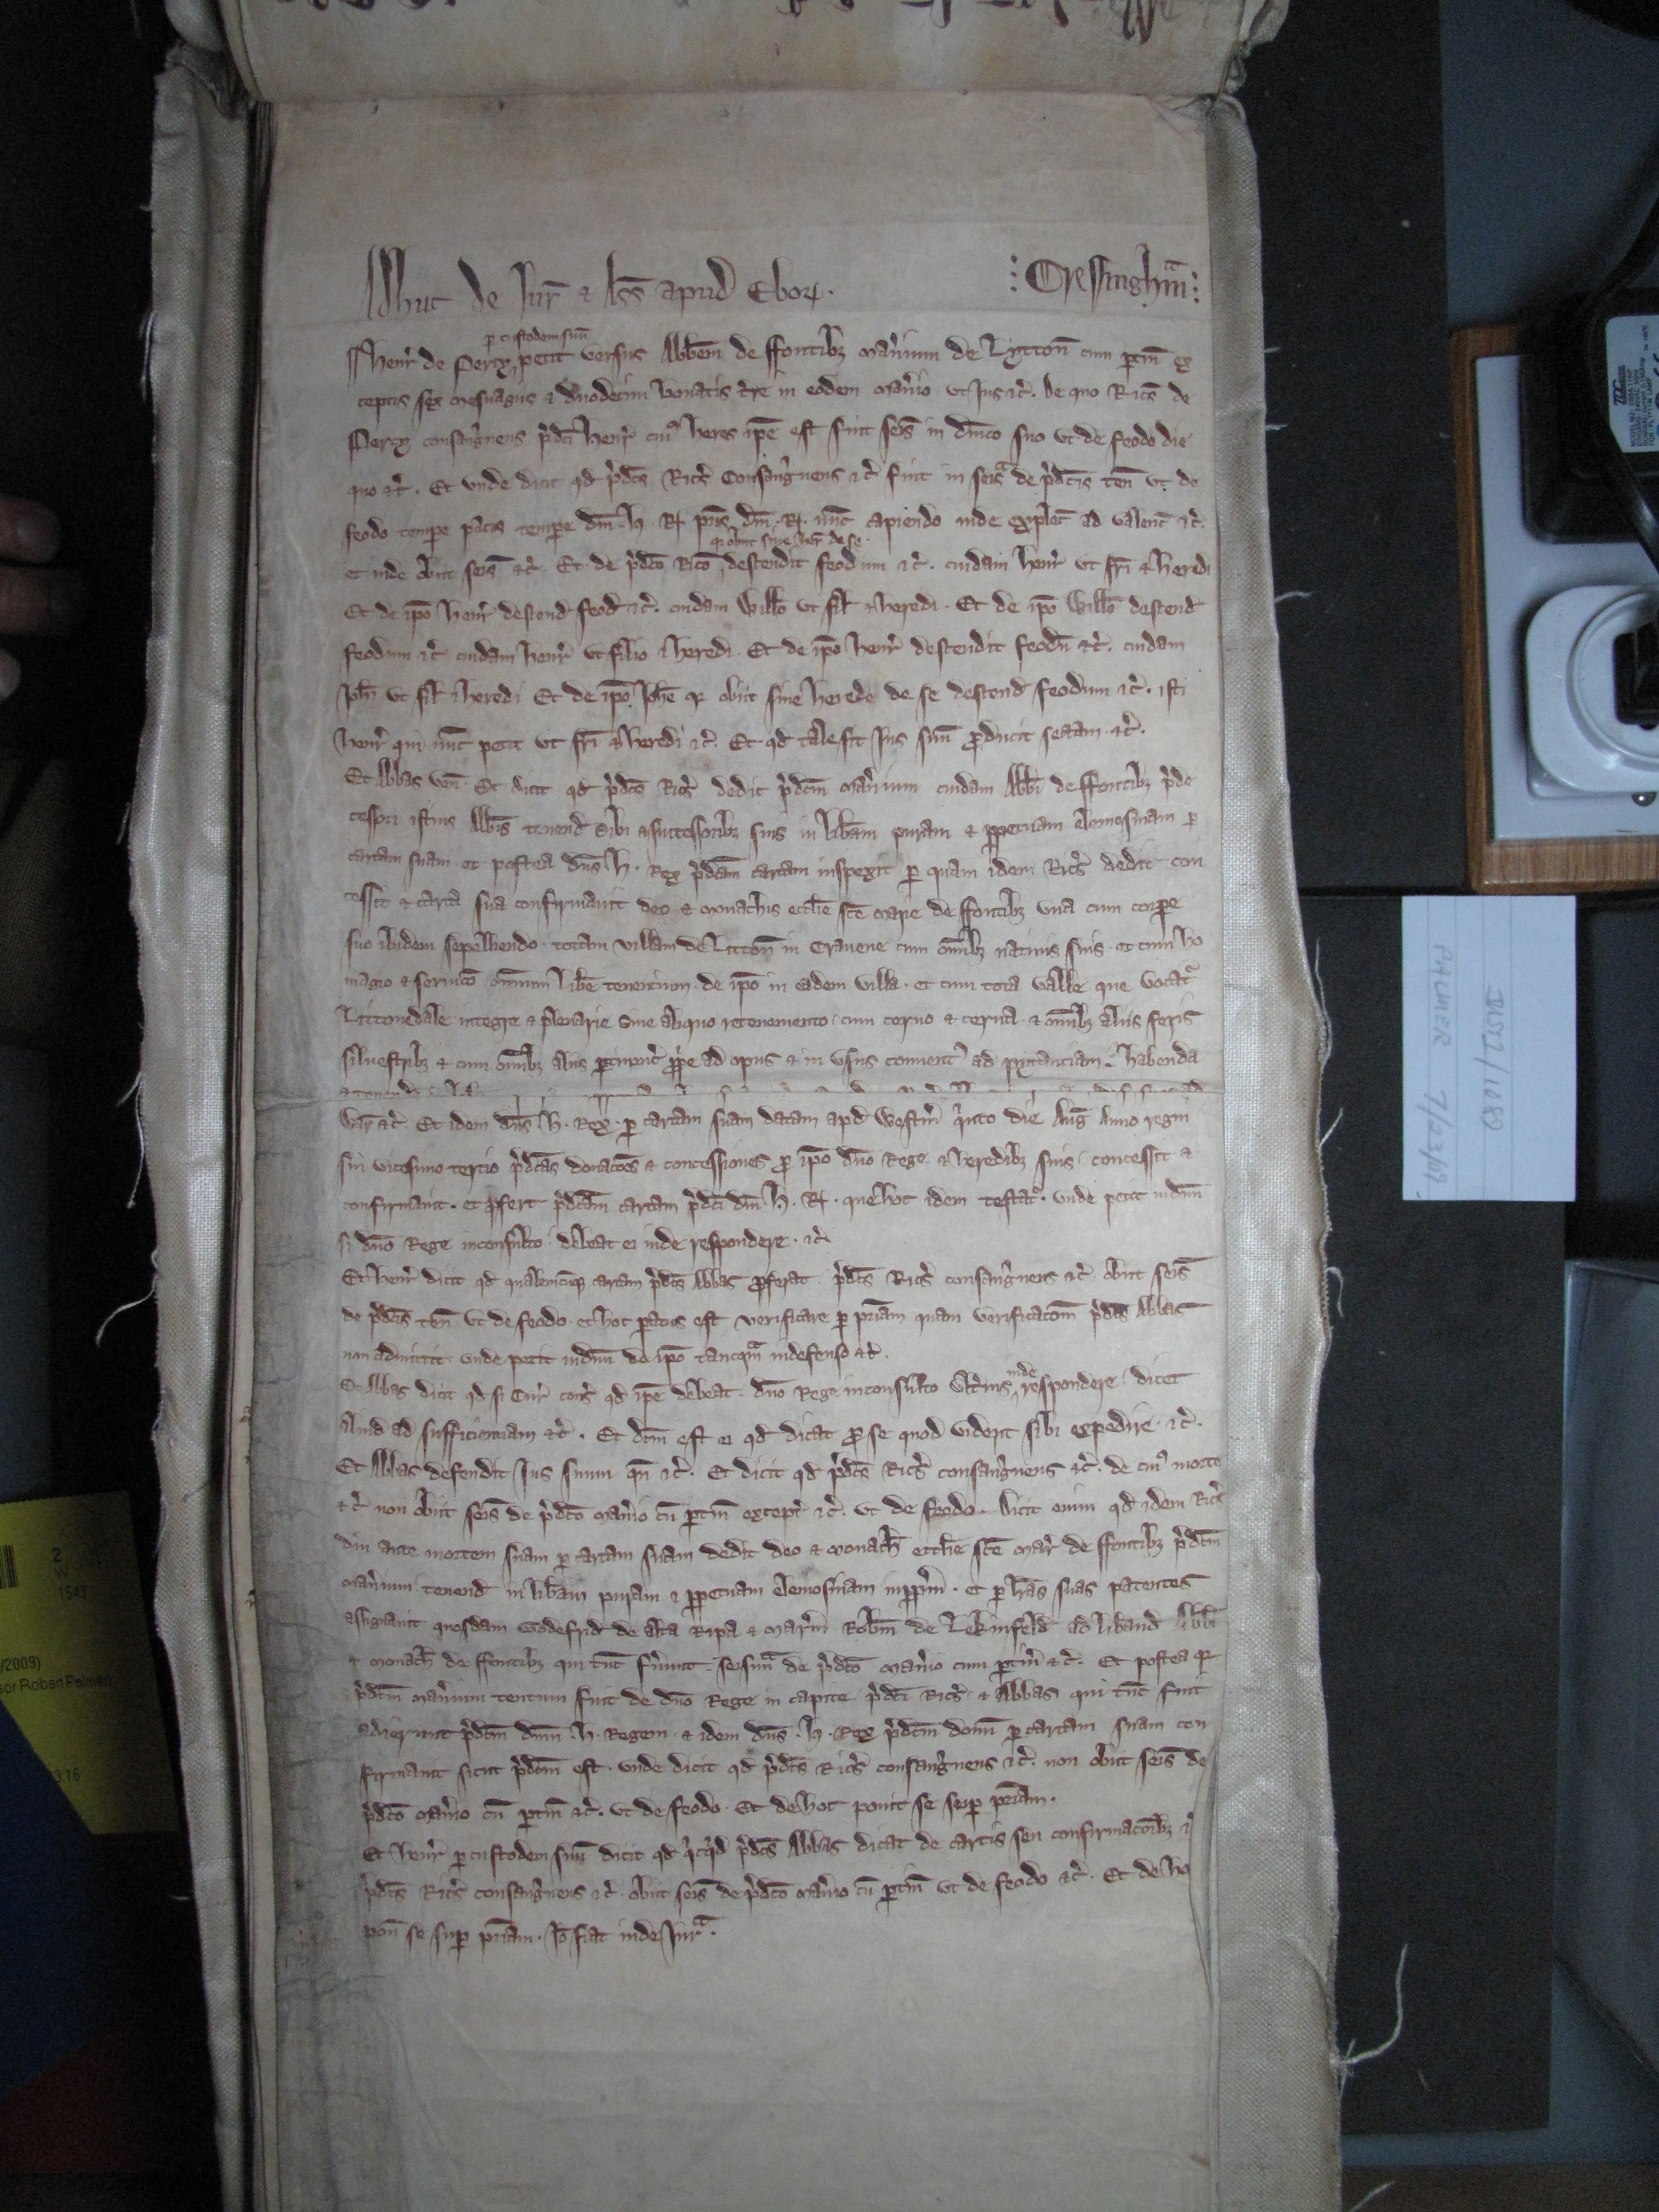 Adhuc de Jur̄ & Ass̄ apud Ebor̄.
⁝ Cressinghm̄ ⁝
p custodem suū
Henr̄ de Percy petit versus Abbem̄ de Ffontibȝ Man̄ium de Lytton̄ cum ptin̄ ex
ceptis sex mesuagiis & duodecim bouatis t̄re in eodem Man̄io ut Jus &c̄. De quo Ric̄s de
Percy consang̍neus p̍dc̄i Henr̄ cuiꝰ heres ip̄e est fuit seis̄ in dn̄ico suo ut de feodo die
quo &c̄. Et unde dicit qd p̍dc̄s Ric̄s Consang̍neus &c̄ fuit in seisᵃ de p̍dc̄is ten̄ ut de
feodo tempe pacis tempe dn̄i H. R. pris dn̄i R. nūc capiendo inde explec̄ ad valenc̄ &c̄.
q obiit sine her̄ de se
et inde obiit seis̄ &c̄ Et de p̍dc̄o Ric̄o descendit feodum &c̄. cuidam Henr̄ ut fr̄i & heredi
Et de ip̄o Henr̄ descend̄ feod̄ &c̄. cuidam Will̄o ut fil̄ & heredi. Et de ip̄o Will̄o descend̄
feodum &c̄ cuidam Henr̄ ut filio & heredi. Et de ip̄o Henr̄ descendit feodū &c̄. cuidam
Joh̄i ut fil̄ & heredi Et de ip̄o Joh̄e q obiit sine herede de se descend̄ feodum &c̄. isti
Henr̄ qui nūc petit ut fr̄i & heredi &c̄. Et qd tale sit Jus suū producit sectam &c̄.
Et Abbas ven̄ Et dicit qd p̍dc̄s Ric̄s dedit p̍dc̄m Man̄ium cuidam Abb̄i de Ffontibȝ p̍de
cessori istius Abb̄is tenend̄ sibi & successoribȝ suis in lib̄am puram & ppetuam elemosinam p
cartam suam et postea dn̄s H. Rex p̍dc̄am cartam inspexit p quam idem Ric̄s dedit con
cessit & carta sua confirmauit deo & Monachis eccl̄ie sc̄e Marie de Ffontibȝ una cum corpe
suo ibidem sepelliendo totam villam de Litton̄ in Crauene cum om̄ibȝ natiuis suis et cum ho
magio & seruic̄o om̄ium lib̄e tenencium de ip̄o in eadem villa et cum tota valle que vocatͬ
Littonedale integre & plenarie sine aliquo retenemento cum ceruo & cerua & om̄ibȝ aliis feris
siluestribȝ & cum om̄ibȝ aliis ptinenc̄ ppe ad opus & in usus conuentꝰ ad pytanciam habenda
War̄ &c̄. Et idem dn̄s H. Rex p cartam suam datam apd̄ Westm̄ q̍nto die Auḡ Anno regni
sui vicesimo tercio p̍dc̄as donac̄oes & concessiones pro ip̄o dn̄o Rege & heredibȝ suis concessit &
confirmauit. et pfert p̍dc̄am cartam p̍dc̄i dn̄i H. R. que hoc idem testatͬ. unde petit iudm̄
si dn̄o Rege inconsulto debeat ei inde respondere. &c̄.
Et Henr̄ dicit qd qualemcūqȝ cartam p̍dc̄s Abbas proferat p̍dc̄s Ric̄s consang̍neus &c̄ obiit seis̄
de p̍dc̄is ten̄ ut de feodo et hoc patus est verificare p pr̄iam quam verificac̄om̄ p̍dc̄s Abbas
non admittit unde petit iudm̄ de ip̄o tancqᵃm indefenso &c̄.
inde
Et Abbas dicit qd si Cur̄ cons̄ qd ip̄e debeat dn̄o Rege inconsulto ult̍ius respondere dicet
aliud ad sufficienciam &c̄. Et dc̄m est ei qd dicat pro se quod viderit sibi expedire &c̄.
Et Abbas defendit Jus suum qn̄ &c̄. Et dicit qd p̍dc̄s Ric̄s consang̍neus &c̄. de cuiꝰ morte
&c̄ non obiit seis̄ de p̍dc̄o Man̄io cū ptin̄ except̄ &c̄. ut de feodo. Dicit enim qd idem Ric̄s
diu ante mortem suam p cartam suam dedit deo & Monach̄ eccl̄ie sc̄e Mar̄ de Ffontibȝ p̍dc̄m
Man̄ium tenend̄ in lib̄am puram & ppetuam elemosinam inppm̄. et p lr̄as suas patentes
assignauit quosdam Godefrid̄ de Alta Ripa & Robm̄ de Lekinfeld̄ ad liband̄ Abb̄i
& Monach̄ de Ffontibȝ qui tūc fu̍unt seisinᵃ de p̍dc̄o Man̄io cum ptin̄ &c̄. Et postea q
p̍dc̄m Man̄ium tentum fuit de dn̄o Rege in capite p̍dc̄i Ric̄s & Abbas qui tūc fuit
adierunt p̍dc̄m dn̄m H. Regem & idem dn̄s H. Rex p̍dc̄m donū p cartam suam con
firmauit sicut p̍dc̄m est. unde dicit qd p̍dc̄s Ric̄s consang̍neus &c̄. non obiit seis̄ de
p̍dc̄o Man̄io cū ptin̄ &c̄. ut de feodo. Et de hoc ponit se sup pr̄iam.
Et Henr̄ p custodem suū dicit qd q̍cq̍d p̍dc̄s Abbas dicat de cartis seu confirmac̄oibȝ &
p̍dc̄s Ric̄s consang̍neus &c̄ obiit seis̄ de p̍dc̄o Man̄io cū ptin̄ ut de feodo &c̄. Et de ho
pon̄ se sup pr̄iam. Jo fiat inde Jurᵃ.
DIST2/1080
PALMER 7/23/09
/2009)
sor Robert Palmer
2
W
1543
3:16